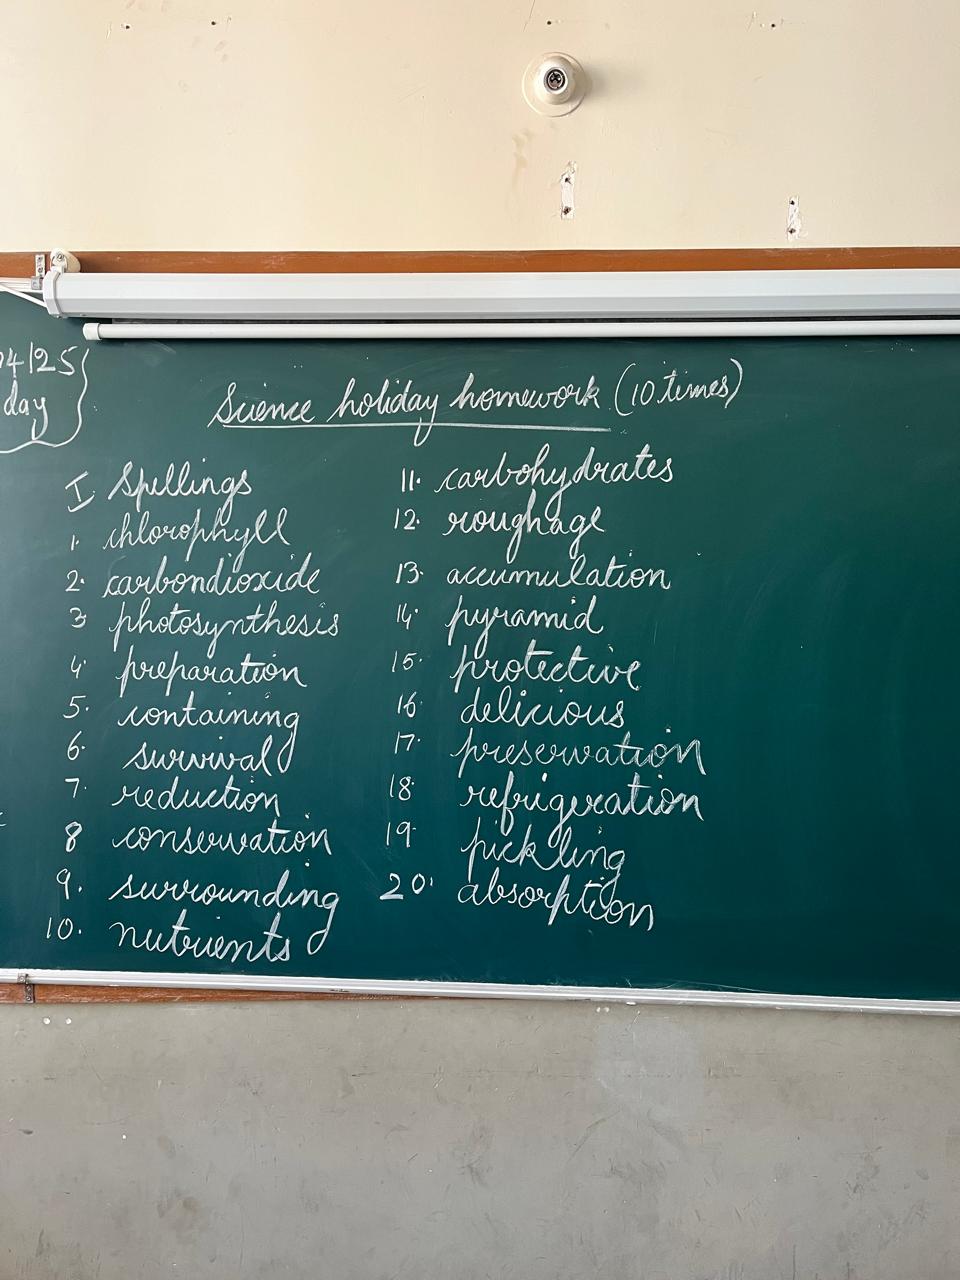 4/25
day
Science holiday homework (10 times)
I. Spellings
1. chlorophyll
2. carbondioxide
3. photosynthesis
4. preparation
5. containing
6. survival
7. reduction
8 conservation
9. surrounding
10. nutrients
11. carbohydrates
12. roughage
13. accumulation
14. pyramid
15. protective
16. delicious
17. preservation
18. refrigeration
19. pickling
20. absorption